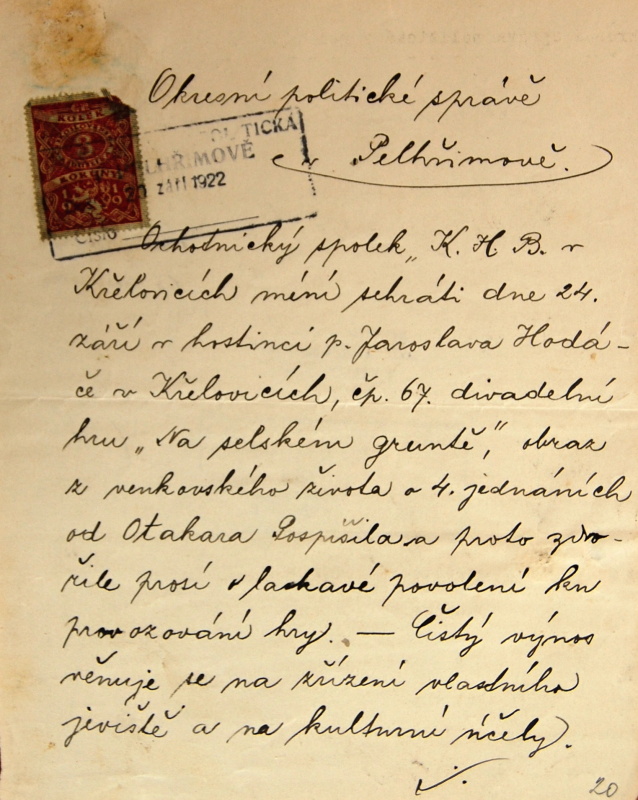 Okresní politické správě
v Pelhřimově.
KOLEK
3
KORUNY
POLITICKÁ
LHŘIMOVĚ
20 září 1922
Číslo
Ochotnický spolek „K. H. B. v
Křelovicích míní sehráti dne 24.
září v hostinci p. Jaroslava Hodá-
če v Křelovicích, čp. 67. divadelní
hru „Na selském gruntě“, obraz
z venkovského života o 4. jednáních
od Otakara Pospíšila a proto zdvo-
řile prosí o laskavé povolení ku
provozování hry. — Čistý výnos
věnuje se na zřízení vlastního
jeviště a na kulturní účely.
20